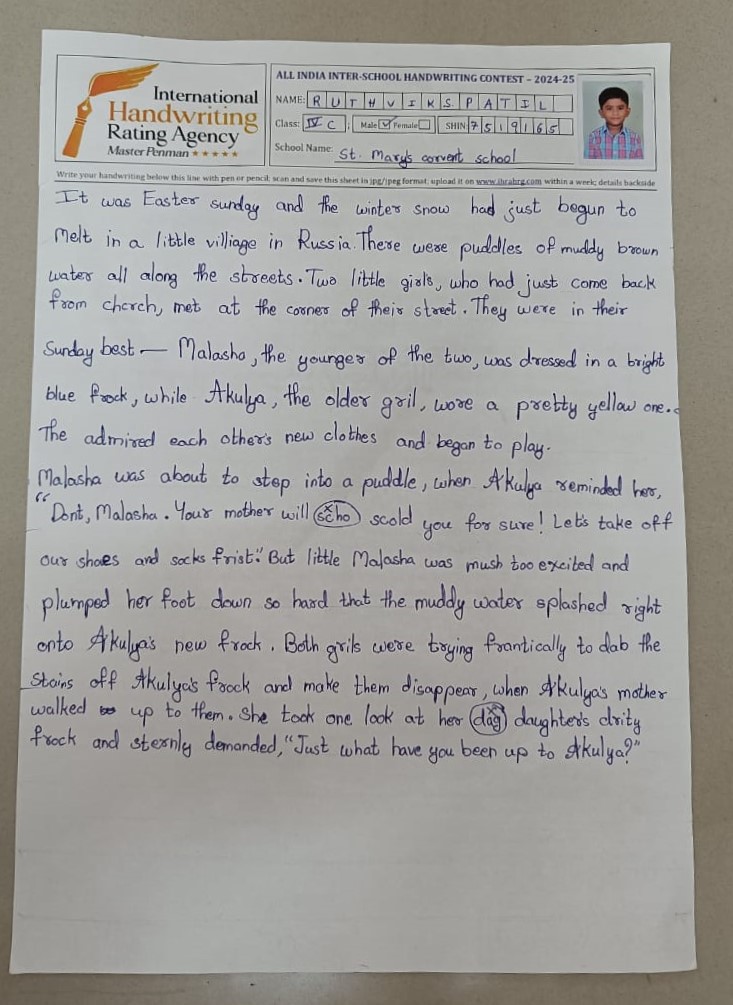 International
Handwriting
Rating Agency
Master Penman ★★★★★
ALL INDIA INTER-SCHOOL HANDWRITING CONTEST – 2024-25
NAME: RUTHVIK S PATIL
Class: IV C ; Male ✓ Female SHIN 7519165
School Name: St. Mary's convent school
Write your handwriting below this line with pen or pencil; scan and save this sheet in jpg/jpeg format; upload it on www.ihrabrg.com within a week; details backside
It was Easter sunday and the winter snow had just begun to
melt in a little villiage in Russia. There were puddles of muddy brown
water all along the streets. Two little girls, who had just come back
from chcrch, met at the corner of their street. They were in their
Sunday best — Malasha, the younger of the two, was dressed in a bright
blue frock, while Akulya, the older gril, wore a pretty yellow one.
The admired each other's new clothes and began to play.
Malasha was about to step into a puddle, when Akulya reminded her,
"Dont, Malasha. Your mother will scho scold you for sure! Let's take off
our shoes and socks frist." But little Malasha was mush too excited and
plumped her foot down so hard that the muddy water splashed right
onto Akulya's new frock. Both grils were trying frantically to dab the
Stains off Akulya's frock and make them disappear, when Akulya's mother
walked up to them. She took one look at her dag daughter's drity
frock and sternly demanded, "Just what have you been up to Akulya?"